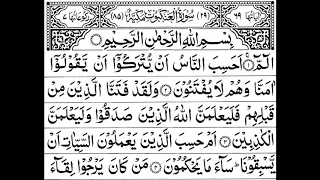 اٰیَاتُهَا ٦٩ (٢٩) سُوْرَةُ الْعَنْكَبُوْتِ مَكِّیَّةٌ (٨٥) رُكُوْعَاتُهَا ٧
بِسْمِ اللّٰهِ الرَّحْمٰنِ الرَّحِیْمِ
الٓمّٓ ١ اَحَسِبَ النَّاسُ اَنْ یُّتْرَكُوْۤا اَنْ یَّقُوْلُوْۤا
اٰمَنَّا وَهُمْ لَا یُفْتَنُوْنَ ٢ وَلَقَدْ فَتَنَّا الَّذِیْنَ مِنْ
قَبْلِهِمْ فَلَیَعْلَمَنَّ اللّٰهُ الَّذِیْنَ صَدَقُوْا وَلَیَعْلَمَنَّ
الْكٰذِبِیْنَ ٣ اَمْ حَسِبَ الَّذِیْنَ یَعْمَلُوْنَ السَّیِّاٰتِ اَنْ
یَّسْبِقُوْنَا ؕ سَآءَ مَا یَحْكُمُوْنَ ٤ مَنْ كَانَ یَرْجُوْا لِقَآءَ